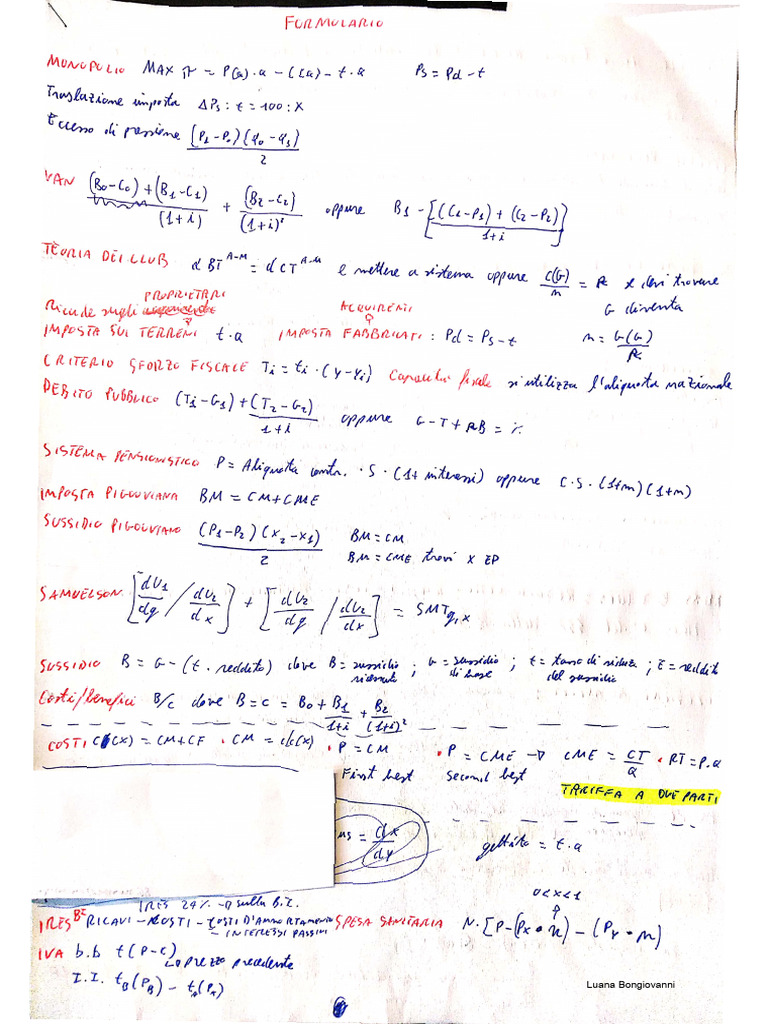 FORMULARIO
MONOPOLIO MAX π = P(a)·a - C(a) - t·a Ps = Pd - t
Traslazione imposta ΔPs : t = 100 : X
Eccesso di pressione (P1 - P0)(q0 - q1) / 2
VAN (B0 - C0) + (B1 - C1) / (1+i) + (B2 - C2) / (1+i)² oppure B1 - [(C1 - P1) + (C2 - P2)] / 1+i
TEORIA DEI CLUB d BT^A-M = d CT^A-M e mettere a sistema oppure C(G) / n = x devi trovare
G diventa
Ricade sugli PROPRIETARI ACQUIRENTI
IMPOSTA SUI TERRENI t·a IMPOSTA FABBRICATI : Pd = Ps - t n = G(G) /
CRITERIO SFORZO FISCALE Ti = ti · (y - yi) Capacità fiscale si utilizza l'aliquota nazionale
DEBITO PUBBLICO (T1 - G1) + (T2 - G2) / 1+i oppure G - T + RB = %
SISTEMA PENSIONISTICO P = Aliquota contr. · S · (1 + interessi) oppure C · S · (1+m)(1+m)
IMPOSTA PIGOUVIANA BM = CM + CME
SUSSIDIO PIGOUVIANO (P1 - P2)(X2 - X1) / 2 BM = CM
BM = CME trovi x EP
SAMUELSON [dU1/dg / dU2/dx] + [dU2/dg / dU2/dx] = SMTg,x
SUSSIDIO B = G - (t. reddito) dove B = sussidio ricevuto ; G = sussidio di base ; t = tasso di riduz. del sussidio ; E = reddito
Costi/benefici B/c dove B = c = B0 + B1 / 1+i + B2 / (1+i)²
COSTI C(X) = CM + CF · CM = dc(X) · P = CM · P = CME → CME = CT / Q · RT = P.Q
First best second best
TARIFFA A DUE PARTI
ms = dx / dy
gettito = t·a
0<x<1
IRES 24% → sulla B.I.
IRES BI RICAVI - COSTI - COSTI D'AMMORTAMENTO - INTERESSI PASSIVI SPESA SANITARIA N. [P - (Px · n) - (Py · n)
IVA b.b t(P - C)
↳ prezzo precedente
I.I. tB(PB) - tA(PA)
Luana Bongiovanni